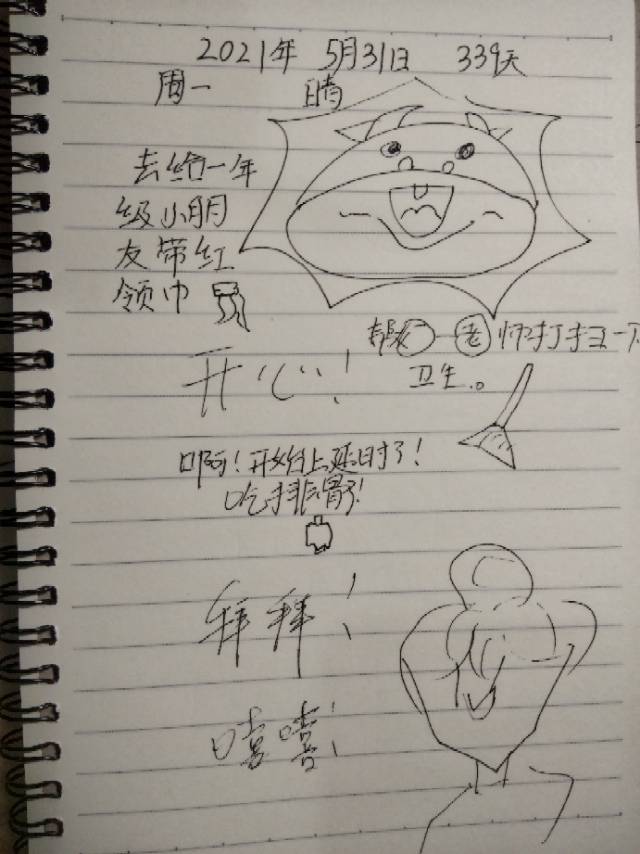 2021年 5月31日 339天
周一 晴
去给一年
级小朋
友带红
领巾
老师打扫一下
卫生。
开心!
啊!开始上延时了!
吃排骨!
拜拜!
嘻嘻!